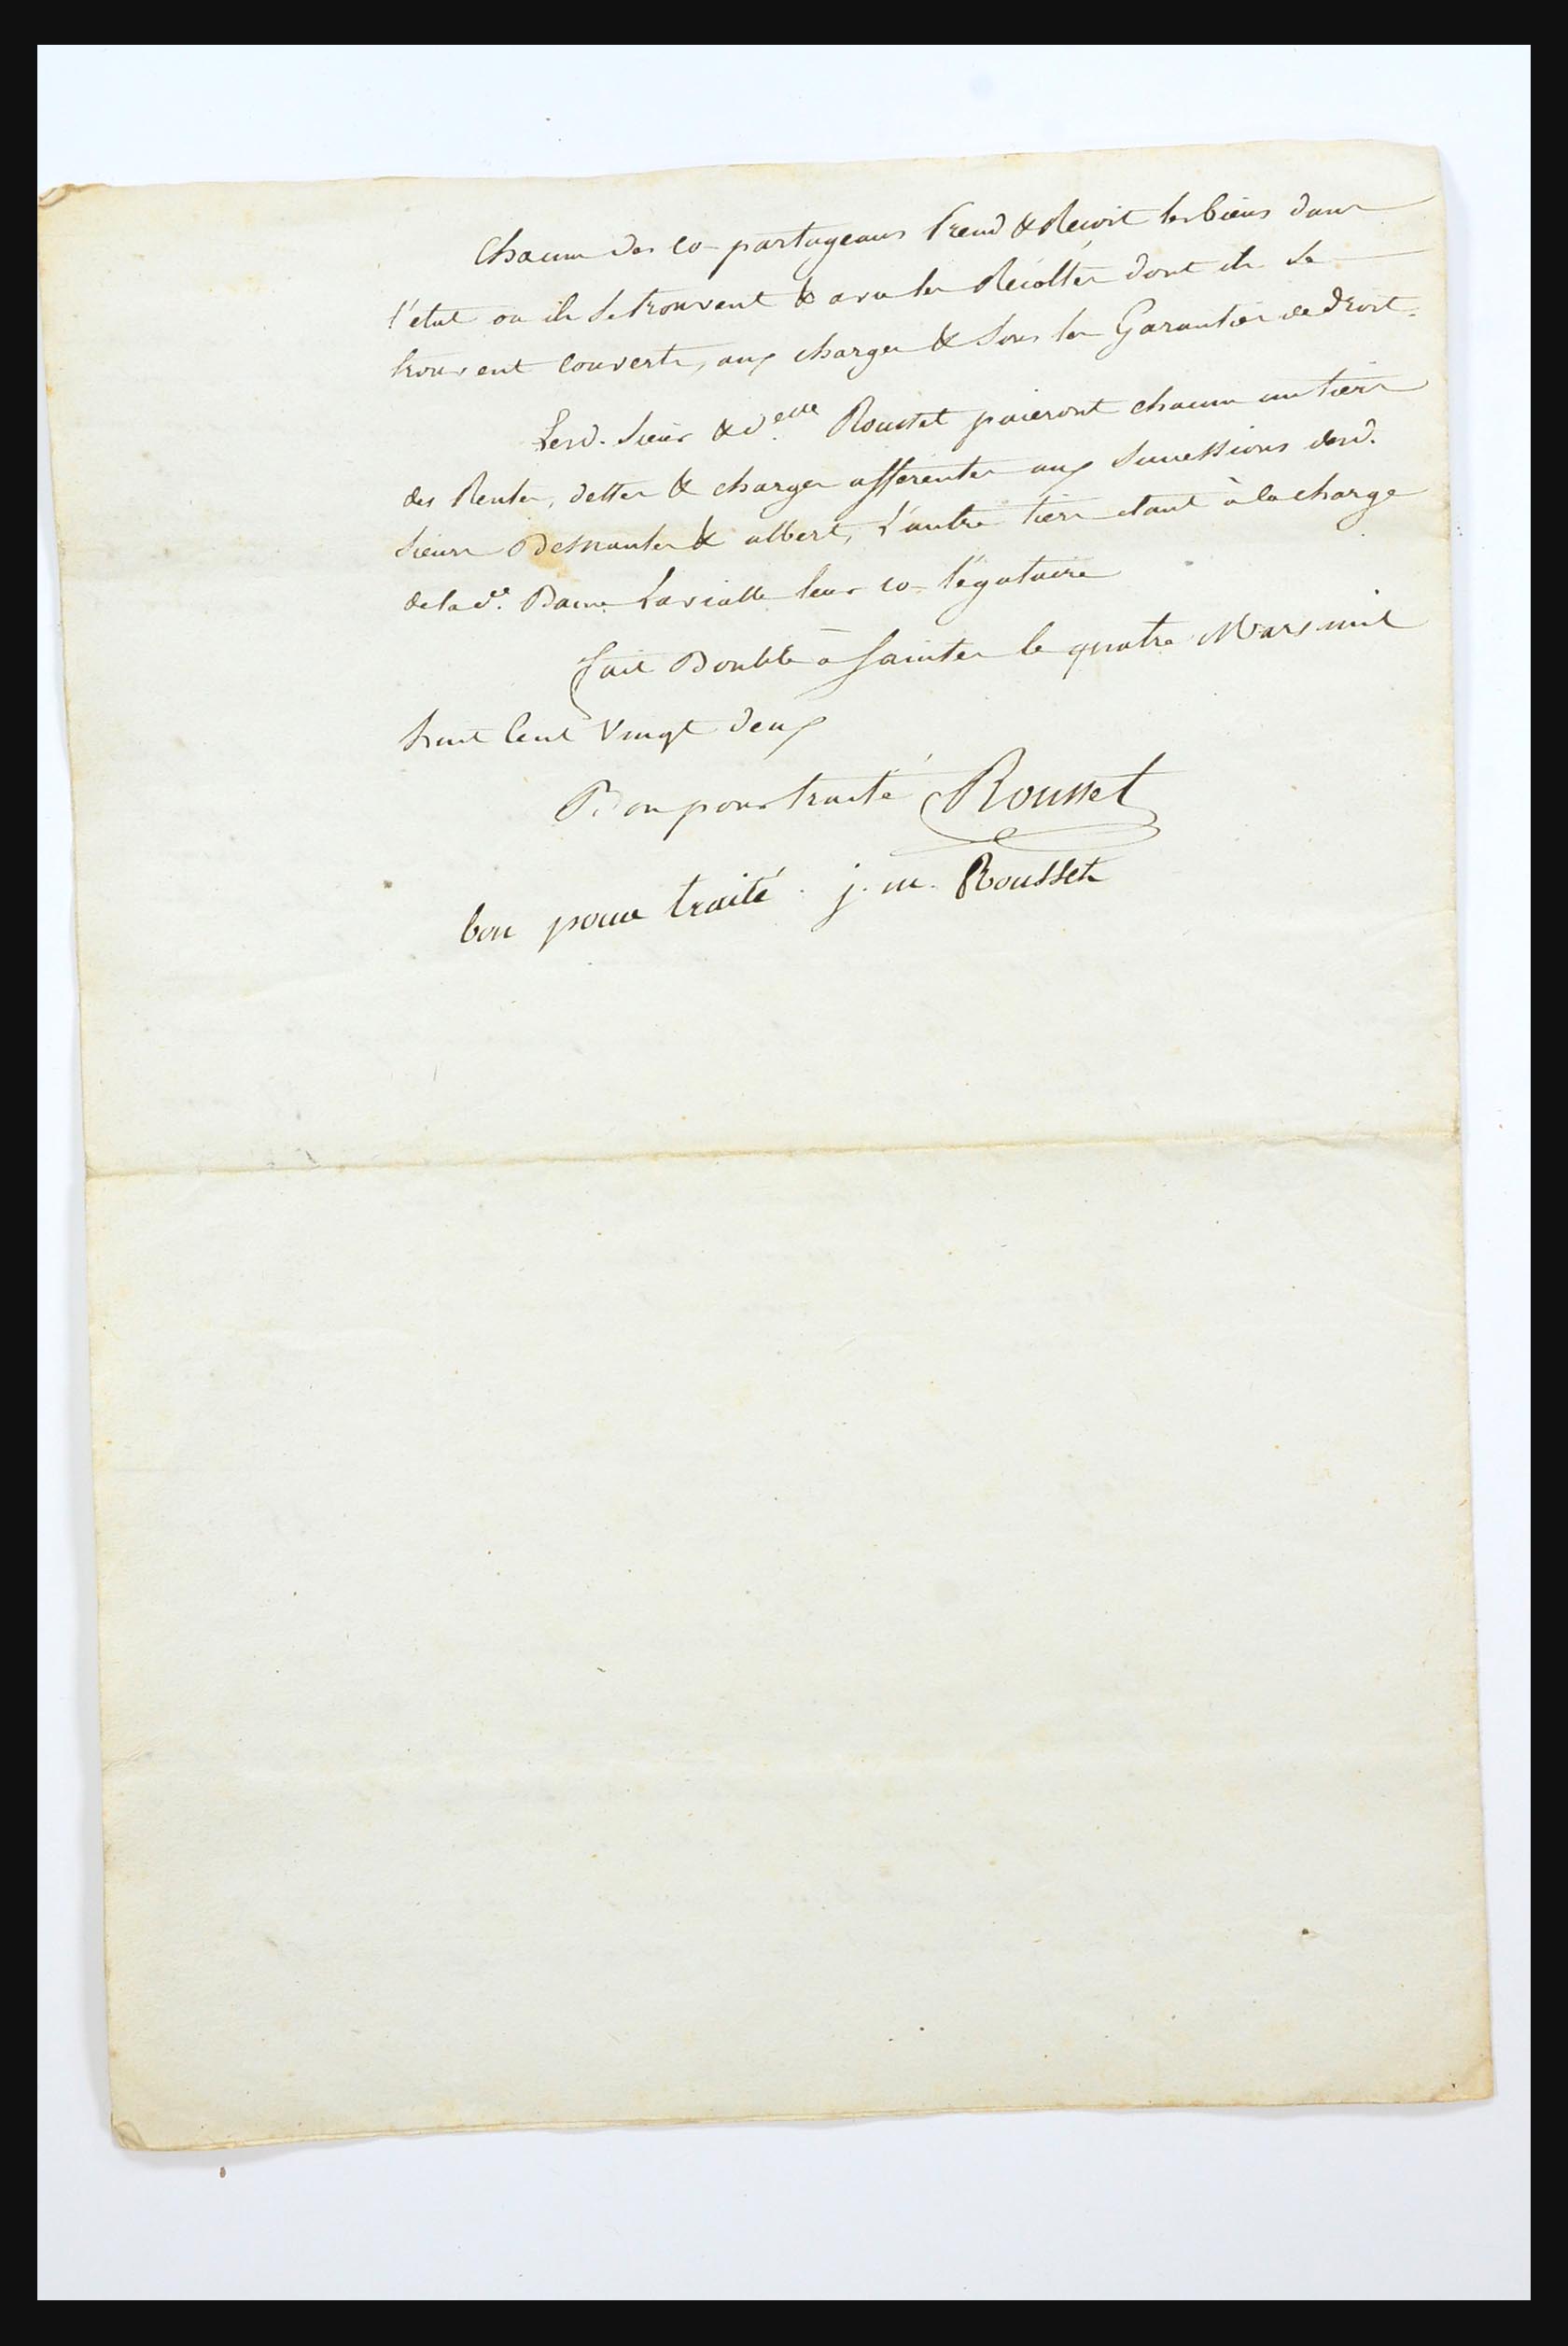 Chacun des co-partageans Prend & Recoit les biens dans
l'etat ou ils se trouvent & avec les Récoltes dont ils se
trouvent couverts, aux charges & sous les Garanties de droit.
Lesd. Sieur & d.elle Rousset paieront chacun un tiers
des Rentes, dettes & charges afférentes aux successions desd.
Sieurs & albert, L'autre tiers etant à la charge
de la de. Dame Lavialle leur co-légataire
fait Double à Saintes le quatre Mars mil
huit Cent Vingt deux
Bon pour traité Rousset
bon pour traité. j. m. Rousset